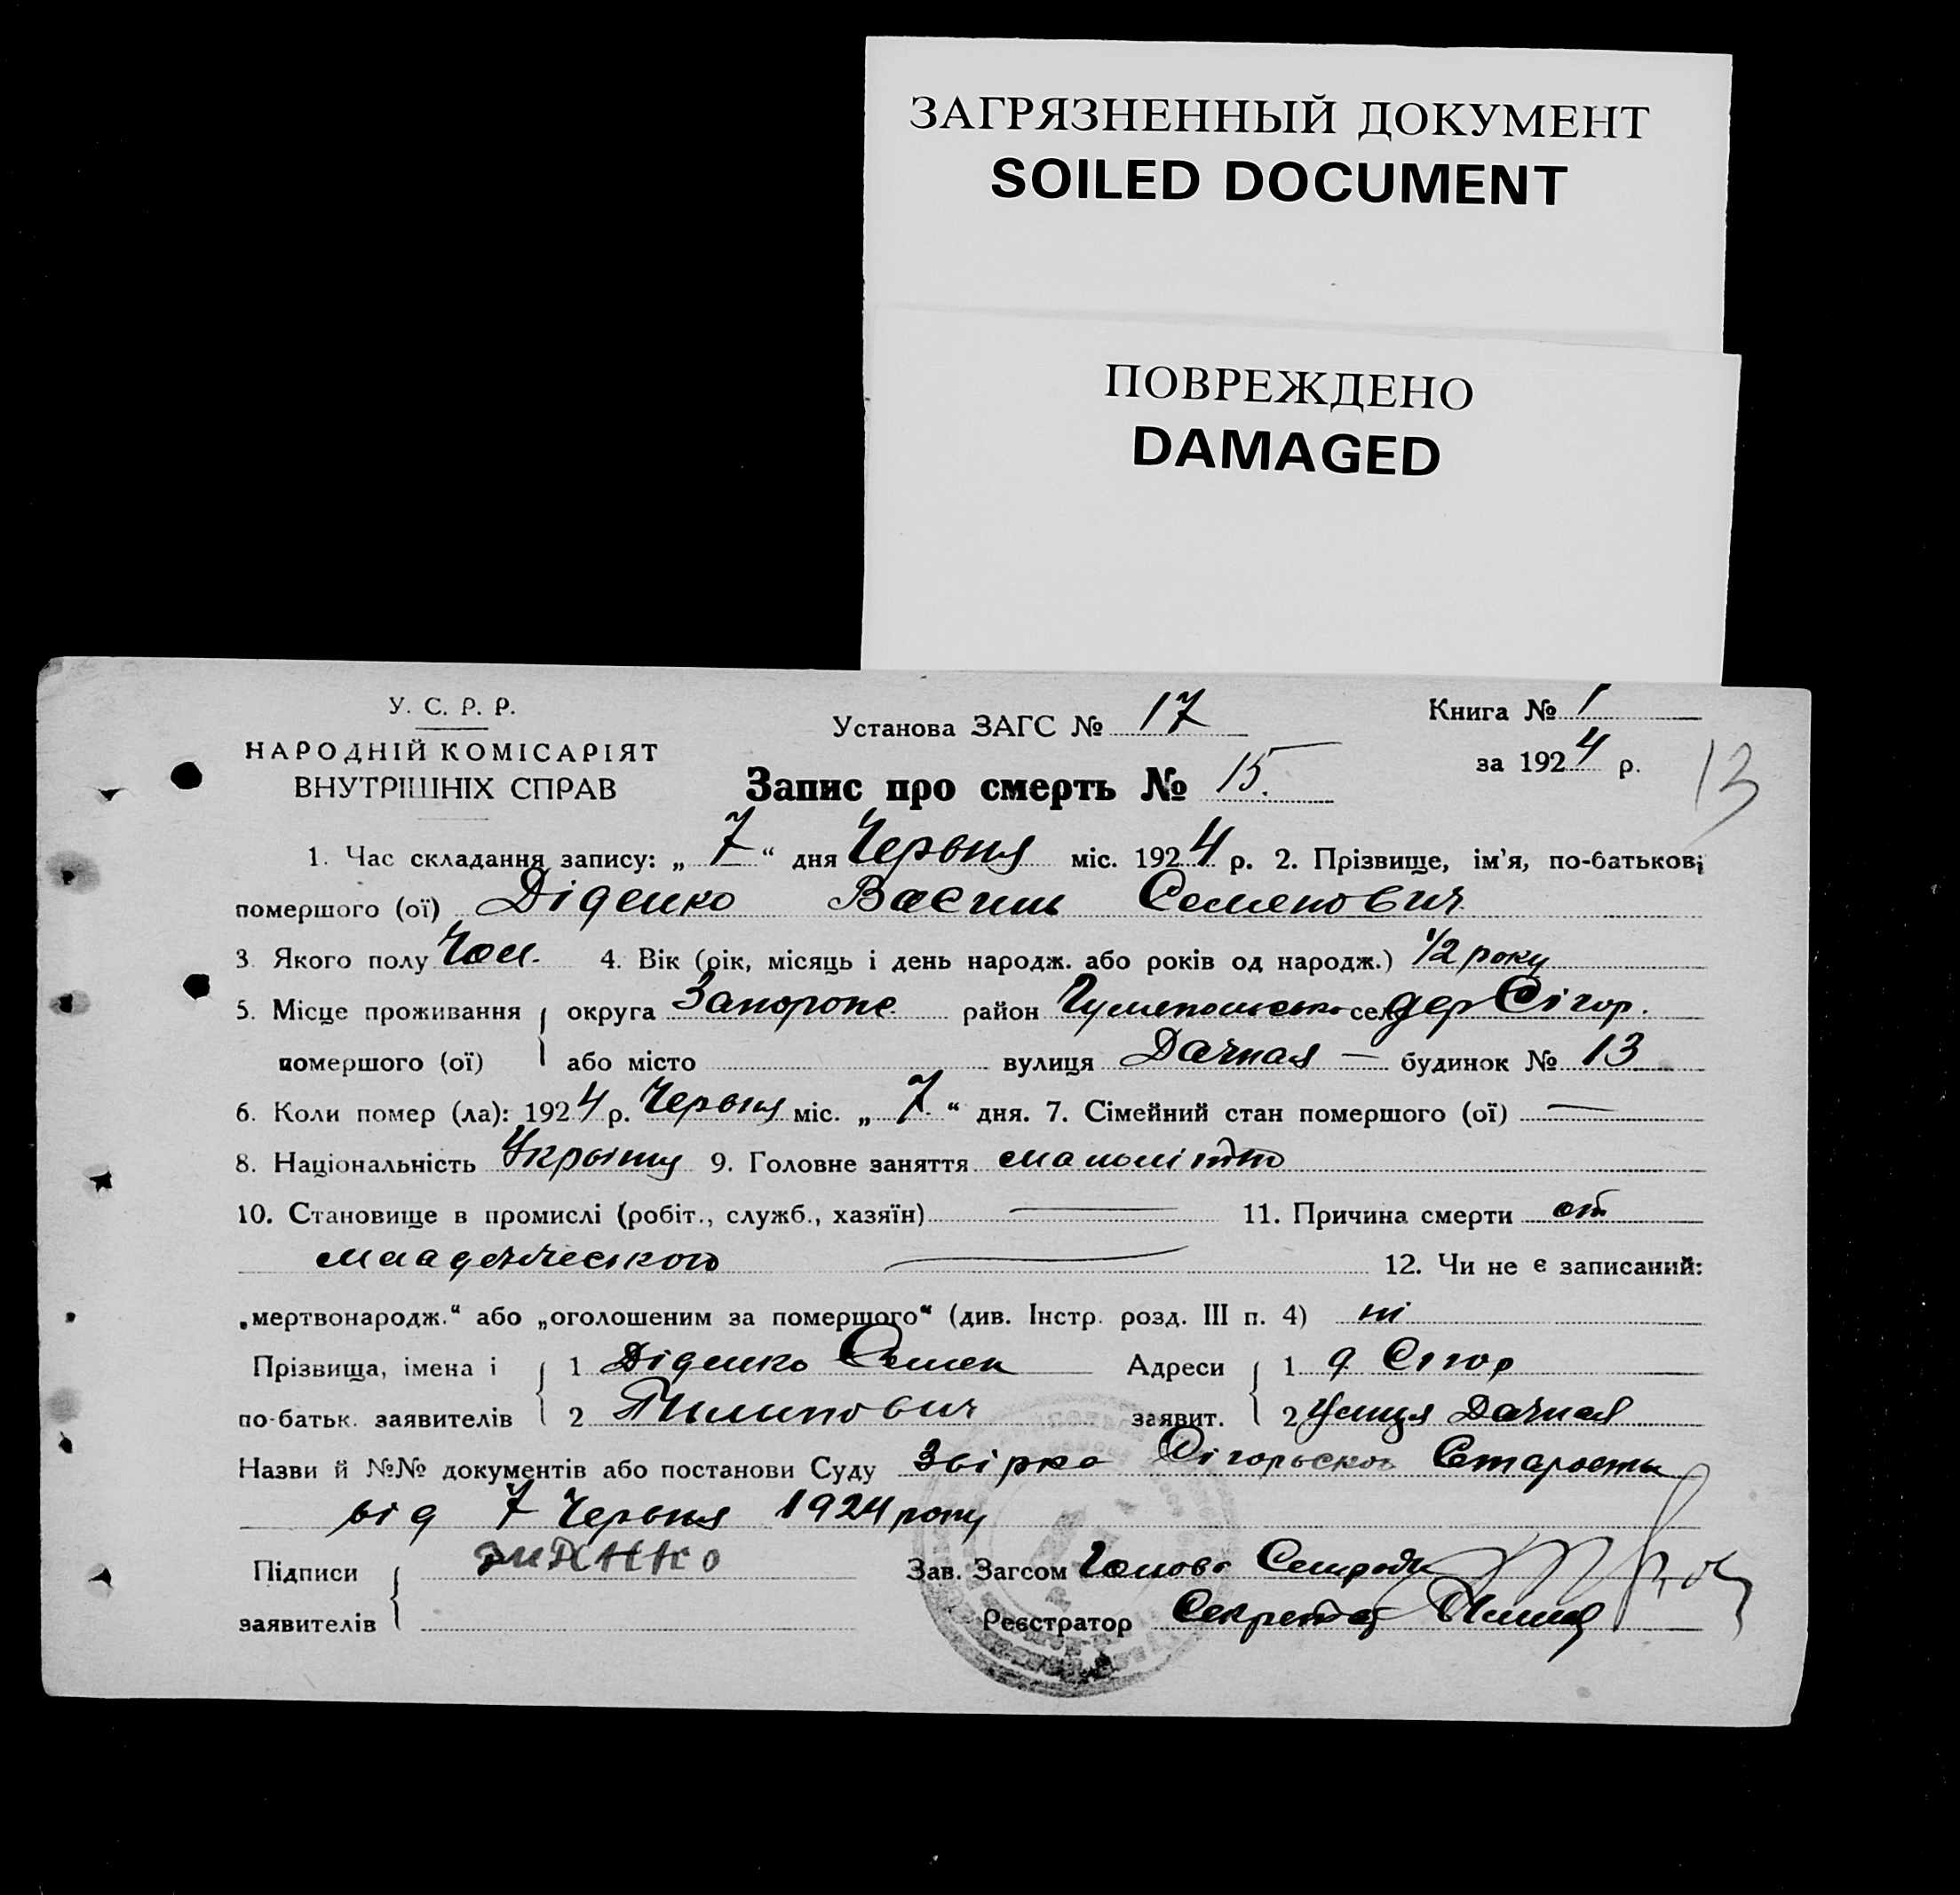 ЗАГРЯЗНЕННЫЙ ДОКУМЕНТ
SOILED DOCUMENT
ПОВРЕЖДЕНО
DAMAGED
У. С. Р. Р.
НАРОДНІЙ КОМІСАРІЯТ
ВНУТРІШНІХ СПРАВ
Установа ЗАГС № 17
Книга № 1
за 1924 р.
13
Запис про смерть № 15.
1. Час складання запису: „ 7 “ дня Червня міс. 1924 р. 2. Прізвище, ім’я, по-батькові
помершого (ої) Діденко Василь Семенович
3. Якого полу Чол. 4. Вік (рік, місяць і день народж. або років од народж.) 1/2 року
5. Місце проживання округа район село дер Сігор.
помершого (ої) або місто вулиця Дачная — будинок № 13
6. Коли помер (ла): 1924 р. Червня міс. „ 7 “ дня. 7. Сімейний стан помершого (ої) —
8. Національність 9. Головне заняття
10. Становище в промислі (робіт., служб., хазяїн) — 11. Причина смерти от
младенческого — 12. Чи не є записаний:
„мертвонародж.“ або „оголошеним за помершого“ (див. Інстр. розд. III п. 4) ні
Прізвища, імена і 1 Діденко Семен Адреси 1 д Сігор
по-батьк. заявителів 2 Пилипович заявит. 2 улиця Дачная
Назви й №№ документів або постанови Суду Старосты
від 7 Червня 1924 року
Підписи Зав. Загсом Голова
заявителів Реєстратор Секретар